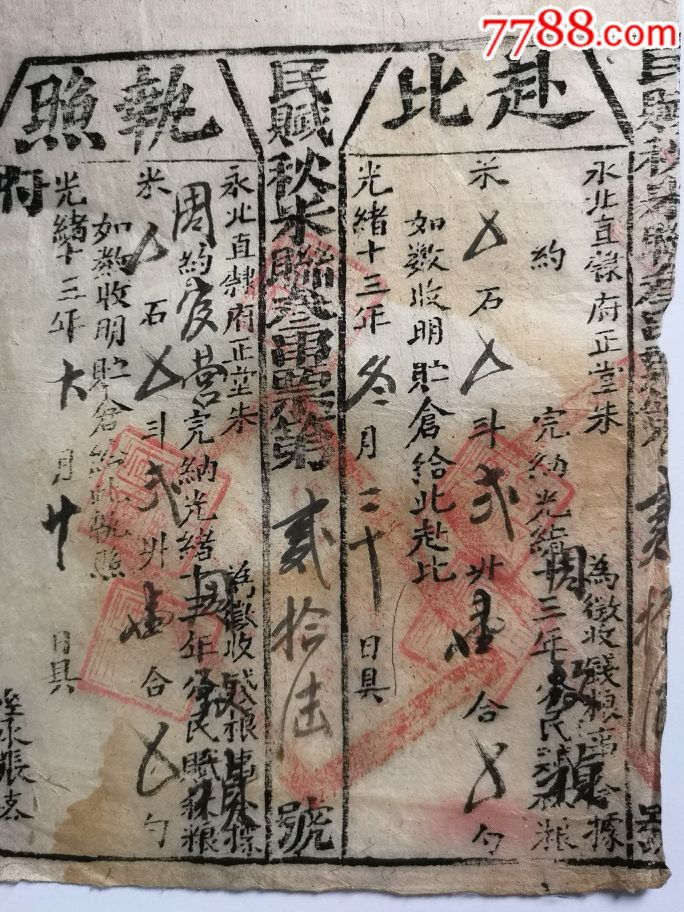 7788.com
赴比
永北直隸府正堂朱為徵收錢糧事今據
約完納光緒十三年分民賦秋糧
米厶石厶斗貳升壹合厶勺
如數收明貯倉給此赴比
光緒十三年冬月二十日具
民賦秋米聯叁串票第貳拾陸號
執照
永北直隸府正堂朱為徵收錢糧事今據
周約營完納光緒十三年分民賦秋糧
米厶石厶斗貳升壹合厶勺
如數收明貯倉給此執照
光緒十三年月廿日具
府
經承張